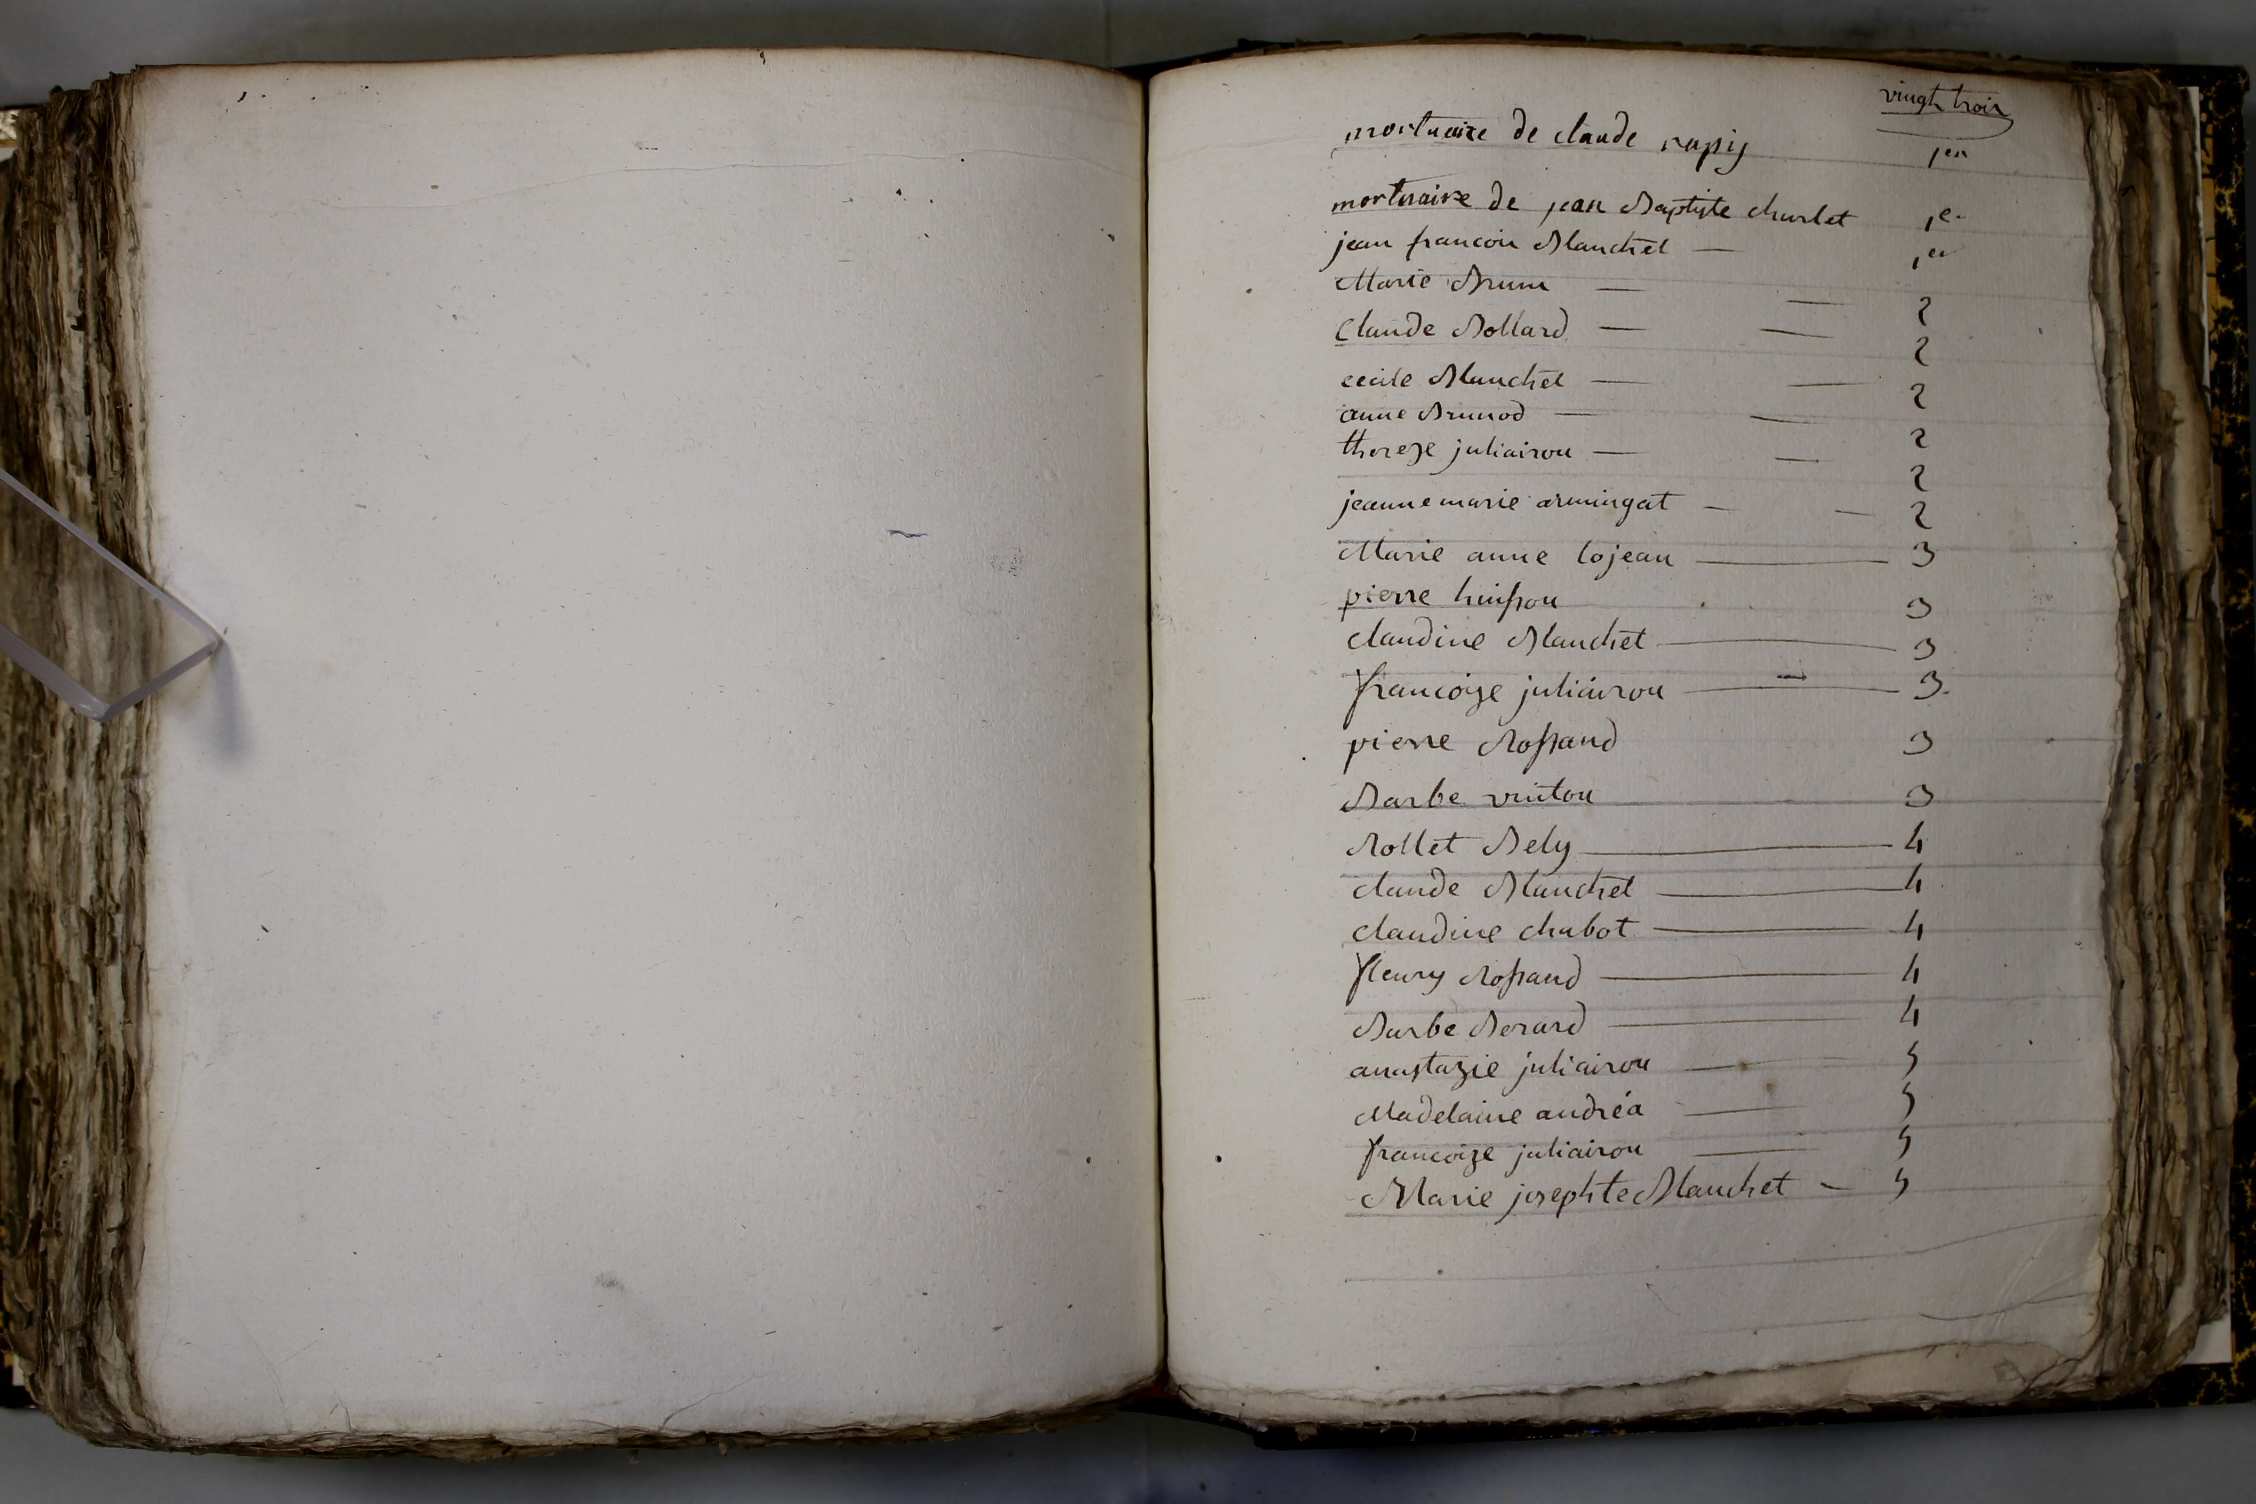 vingt trois
mortuaire de claude rapiy 1er
mortuaire de jean Baptiste churlet 1er
jean francois Blanchet — 1er
Marie Brun — — 2
Claude Bollard — — 2
cecile Blanchet — — 2
anne Brunod — — 2
thereze juliairon — — 2
jeanne marie armingat — — 2
Marie anne lojean — 3
pierre huisson 3
claudine Blanchet — 3
francoize juliairon — 3.
pierre Rossand 3
Barbe vuiton 3
Rollet Bely — 4
claude Blanchet — 4
claudine chabot — 4
fleury Rossand — 4
Barbe Berard — 4
anastazie juliairon — 5
Madelaine andréa — 5
francoize juliairon — 5
Marie josephte Blanchet — 5